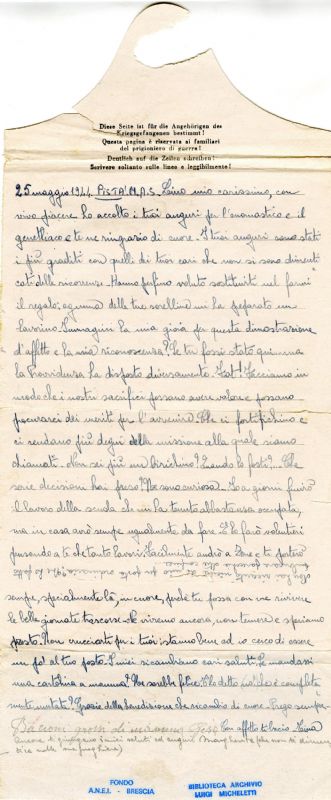 Diese Seite ist für die Angehörigen des
Kriegsgefangenen bestimmt!
Questa pagina è riservata ai familiari
del prigioniero di guerra!
Deutlich auf die Zeilen schreiben!
Scrivere soltanto sulle linee e leggibilmente!
25 maggio 1944. M.A.S. Lino mio carissimo, con
vivo piacere ho accolto i tuoi auguri per l'onomastico e il
genetliaco e te ne ringrazio di cuore. I tuoi auguri sono stati
i più graditi con quelli di tuoi cari che non si sono dimenti
cati delle ricorrenze. Hanno perfino voluto sostituirti nel farmi
il regalo: ognuna delle tue sorelline mi ha preparato un
lavorino. Immagini la mia gioia per questa dimostrazione
d'affetto e la mia riconoscenza? Se tu fossi stato qui... ma
la Provvidenza ha disposto diversamente. Fiat! Facciamo in
modo che i nostri sacrifici possano avere valore e possano
procurarci dei meriti per l'avvenire. Che ci fortifichino e
ci rendano più degni della missione alla quale siamo
chiamati. Non sei più un birichino? Quando lo fosti?... Che
serie decisioni hai preso? Ne sono curiosa. Fra giorni finirò
il lavoro della scuola che mi ha tenuta abbastanza occupata,
ma in casa avrò sempre ugualmente da fare. E lo farò volentieri
pensando a te che tanto lavori. Facilmente andrò a e ti porterò
sempre, specialmente là, in cuore, perché tu possa con me rivivere
le belle giornate trascorse. Ne vivremo ancora, non temere e speriamo
presto. Non crucciarti per i tuoi: stanno bene ed io cerco di essere
un po' al tuo posto. I miei ricambiano cari saluti. Le mandassi
una cartolina a mamma? Ne sarebbe felice. L'ho detto
mutata? Grazie della benedizione che ricambio di cuore. Prego sempre.
Bacioni grossi di
Con affetto ti bacio
FONDO
A.N.E.I. - BRESCIA
BIBLIOTECA ARCHIVIO
LUIGI MICHELETTI